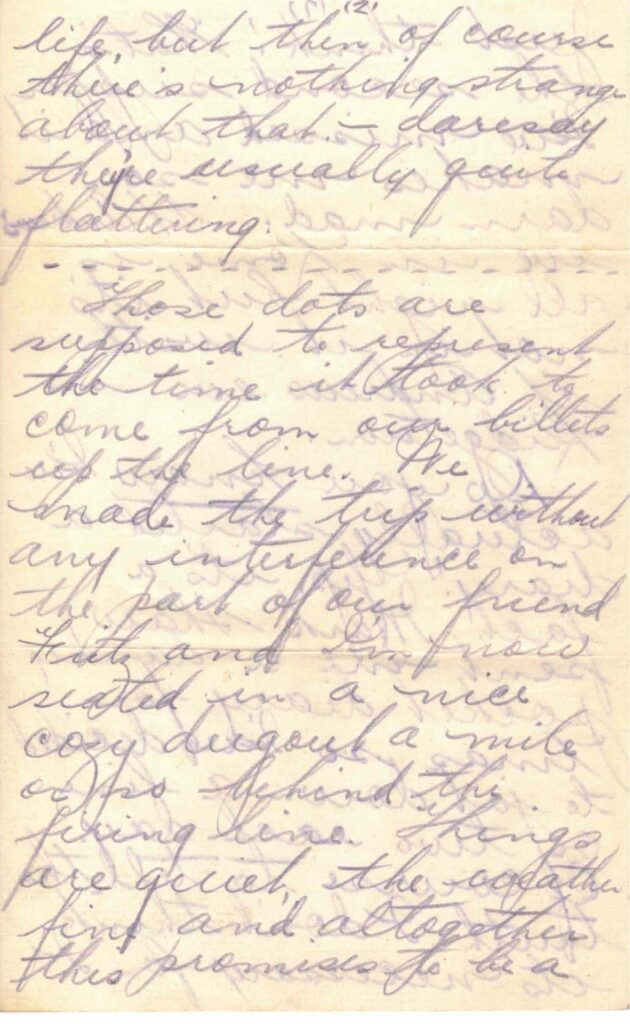 "2"
life, but then of course
there's nothing strange
about that. – daresay
they're usually quite
flattering.
- - - - - - - - - - - - - - - -
Those dots are
supposed to represent
the time it took to
come from our billets
up the line. We
made the trip without
any interference on
the part of our friend
Fritz and I'm now
seated in a nice
cozy dugout a mile
or so behind the
firing line. Things
are quiet, the weather
fine and altogether
this promises to be a